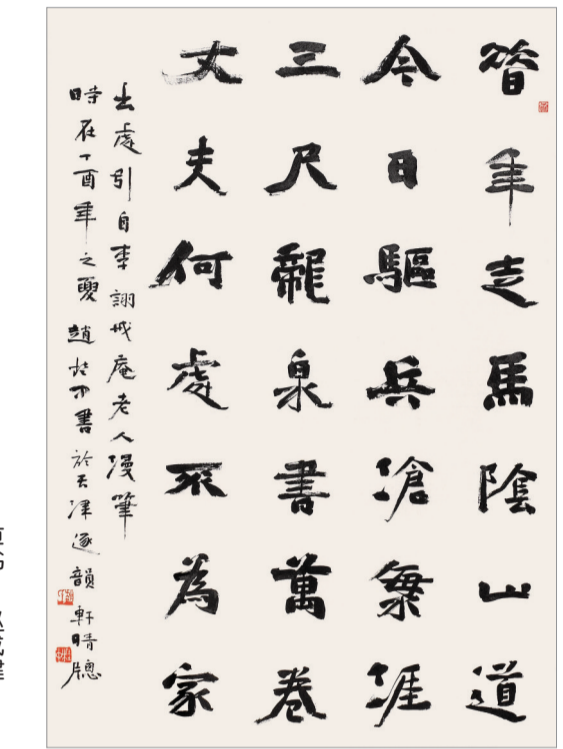 昔年走馬陰山道
今日驅兵滄海涯
三尺龍泉書萬卷
丈夫何處不為家
出處引自李詡戒庵老人漫筆
時在丁酉年之夏趙書於天津逐韻軒晴牕